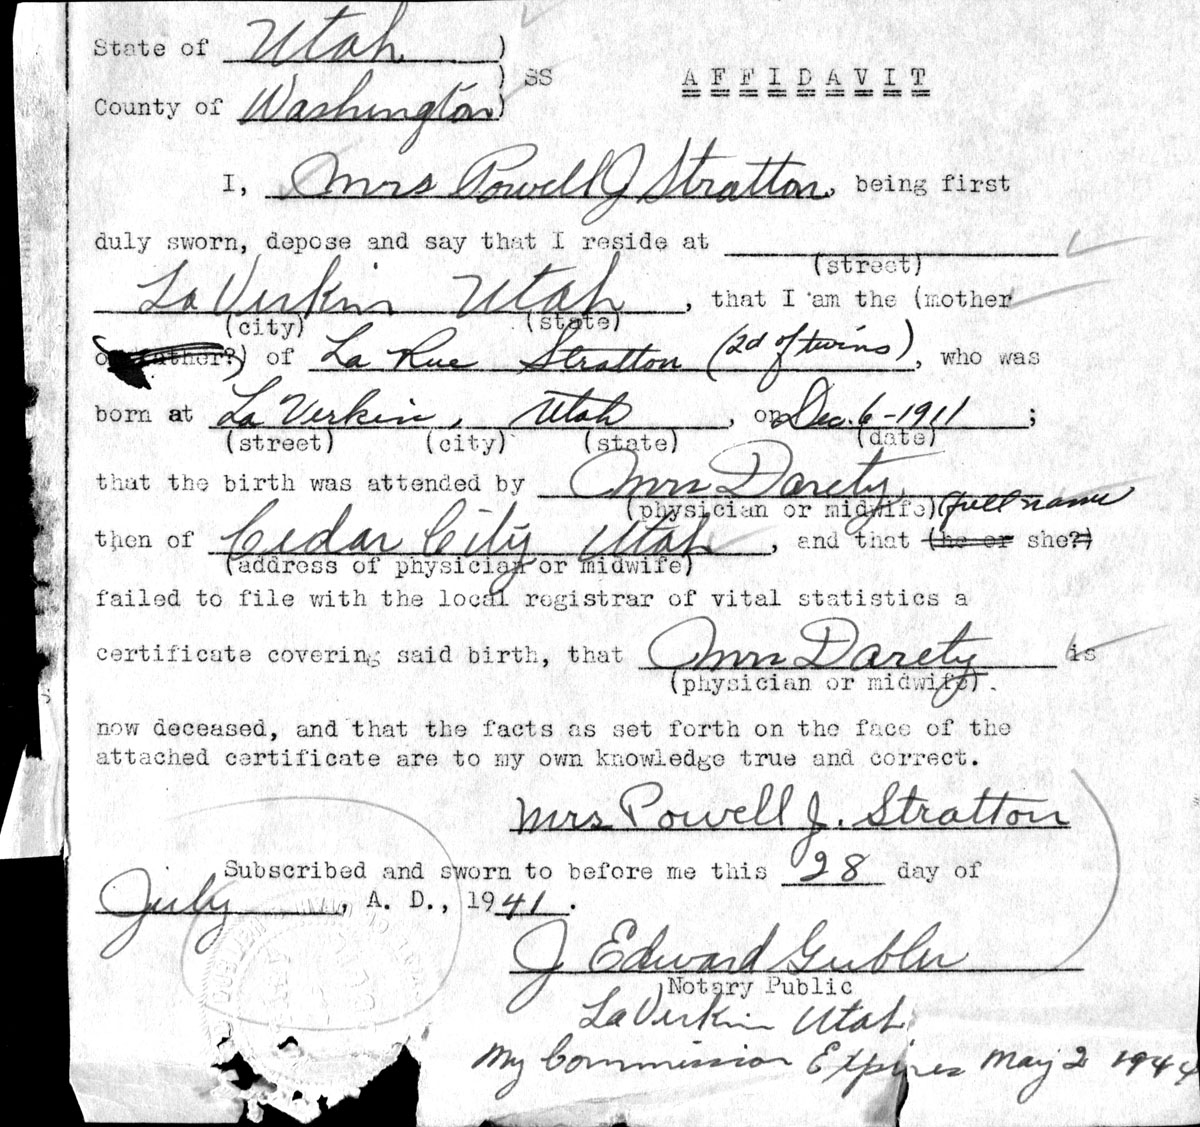 State of Utah )
) SS AFFIDAVIT
County of Washington)
I, Mrs Powell J Stratton, being first
duly sworn, depose and say that I reside at
(street)
La Verkin Utah, that I am the (mother
(city) (state)
or father?) of La Rue Stratton (2d of twins), who was
born at La Verkin, Utah, on Dec. 6-1911;
(street) (city) (state) (date)
that the birth was attended by Mrs Darety
(physician or midwife) (full name
then of Cedar City Utah, and that (he or she?)
(address of physician or midwife)
failed to file with the local registrar of vital statistics a
certificate covering said birth, that Mrs Darety is
(physician or midwife).
now deceased, and that the facts as set forth on the face of the
attached certificate are to my own knowledge true and correct.
Mrs Powell J. Stratton
Subscribed and sworn to before me this 28 day of
July, A. D., 1941.
J Edward Gubler
Notary Public
La Verkin Utah
My Commission Expires May 2 1944